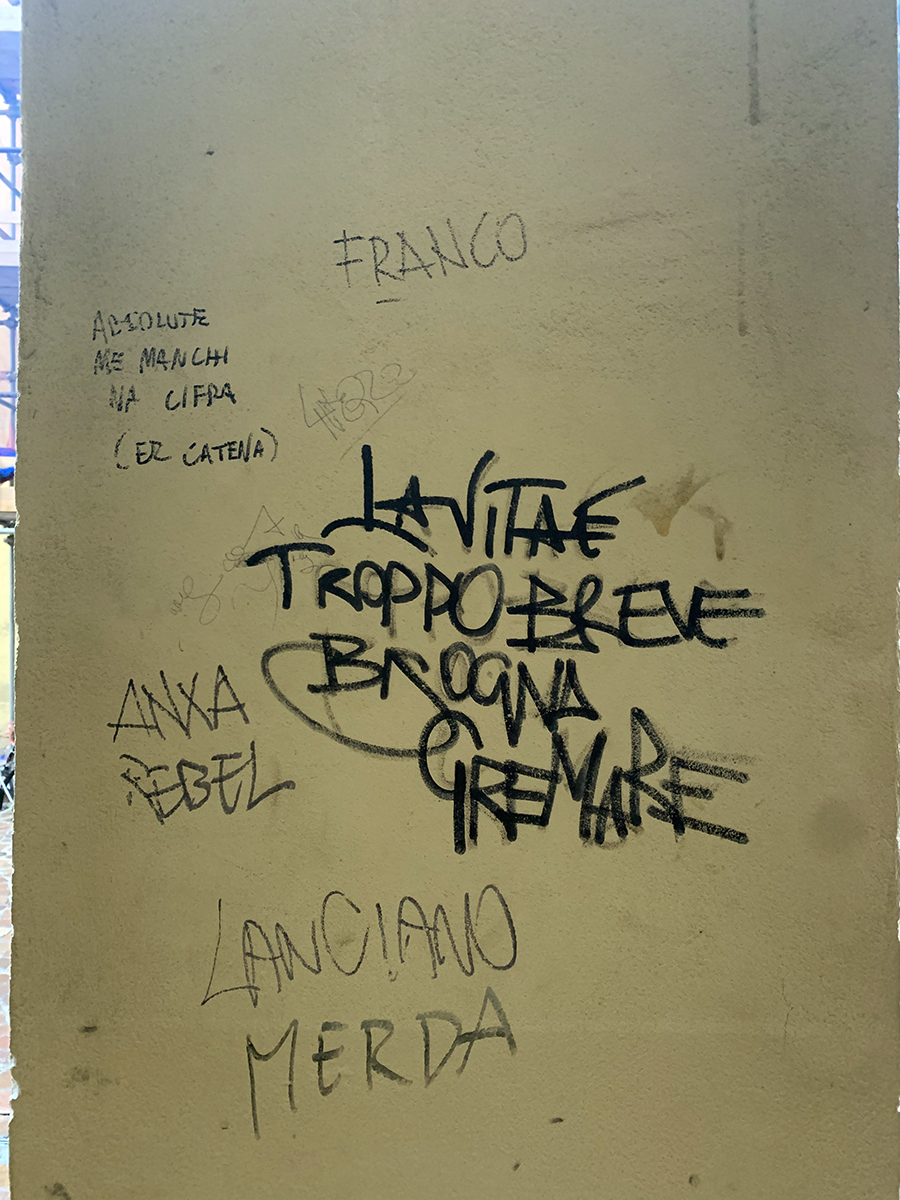 FRANCO
ABSOLUTE
ME MANCHI
NA CIFRA
(ER CATENA)
LA VITA E
TROPPO BREVE
BISOGNA
TREMARE
ANXA
REBEL
LANCIANO
MERDA